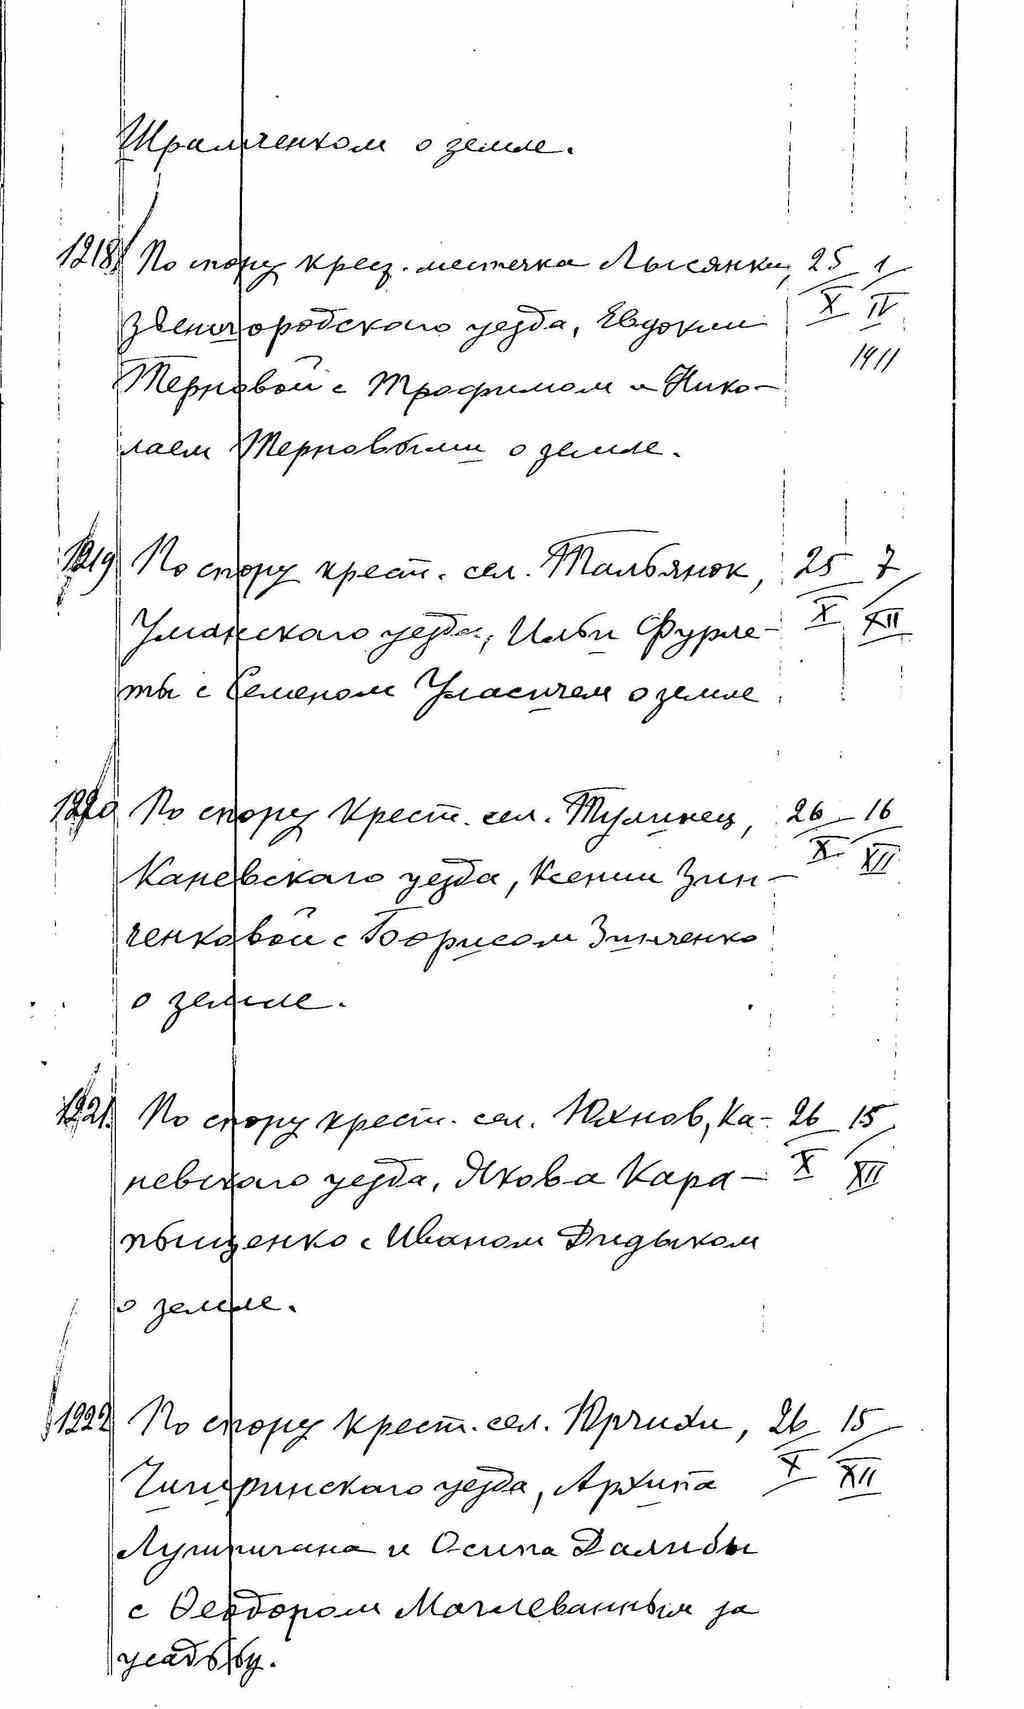 Шрамченком о земле.
1218 По спору крес. местечка Лысянки, 25/X 1/IV 1911
Звенигородского уезда, Евдокии
Терновой с Трофимом и Нико-
лаем Терновыми о земле.
1219 По спору крест. сел. Тальянок, 25/X 7/XII
Уманского уезда, Ильи Фурле-
ты с Семеном Уласичем о земле
1220 По спору крест. сел. Тулинец, 26/X 16/XII
Каневского уезда, Ксении Зин-
ченковой с Борисом Зинченко
о земле.
1221. По спору крест. сел. Юхнов, Ка- 26/X 15/XII
невского уезда, Якова Кара-
пыщенко с Иваном Дидыком
о земле.
1222 По спору крест. сел. Юрчихи, 26/X 15/XII
Чигиринского уезда, Архипа
и Осипа Далибы
с Феодором за
усадьбу.